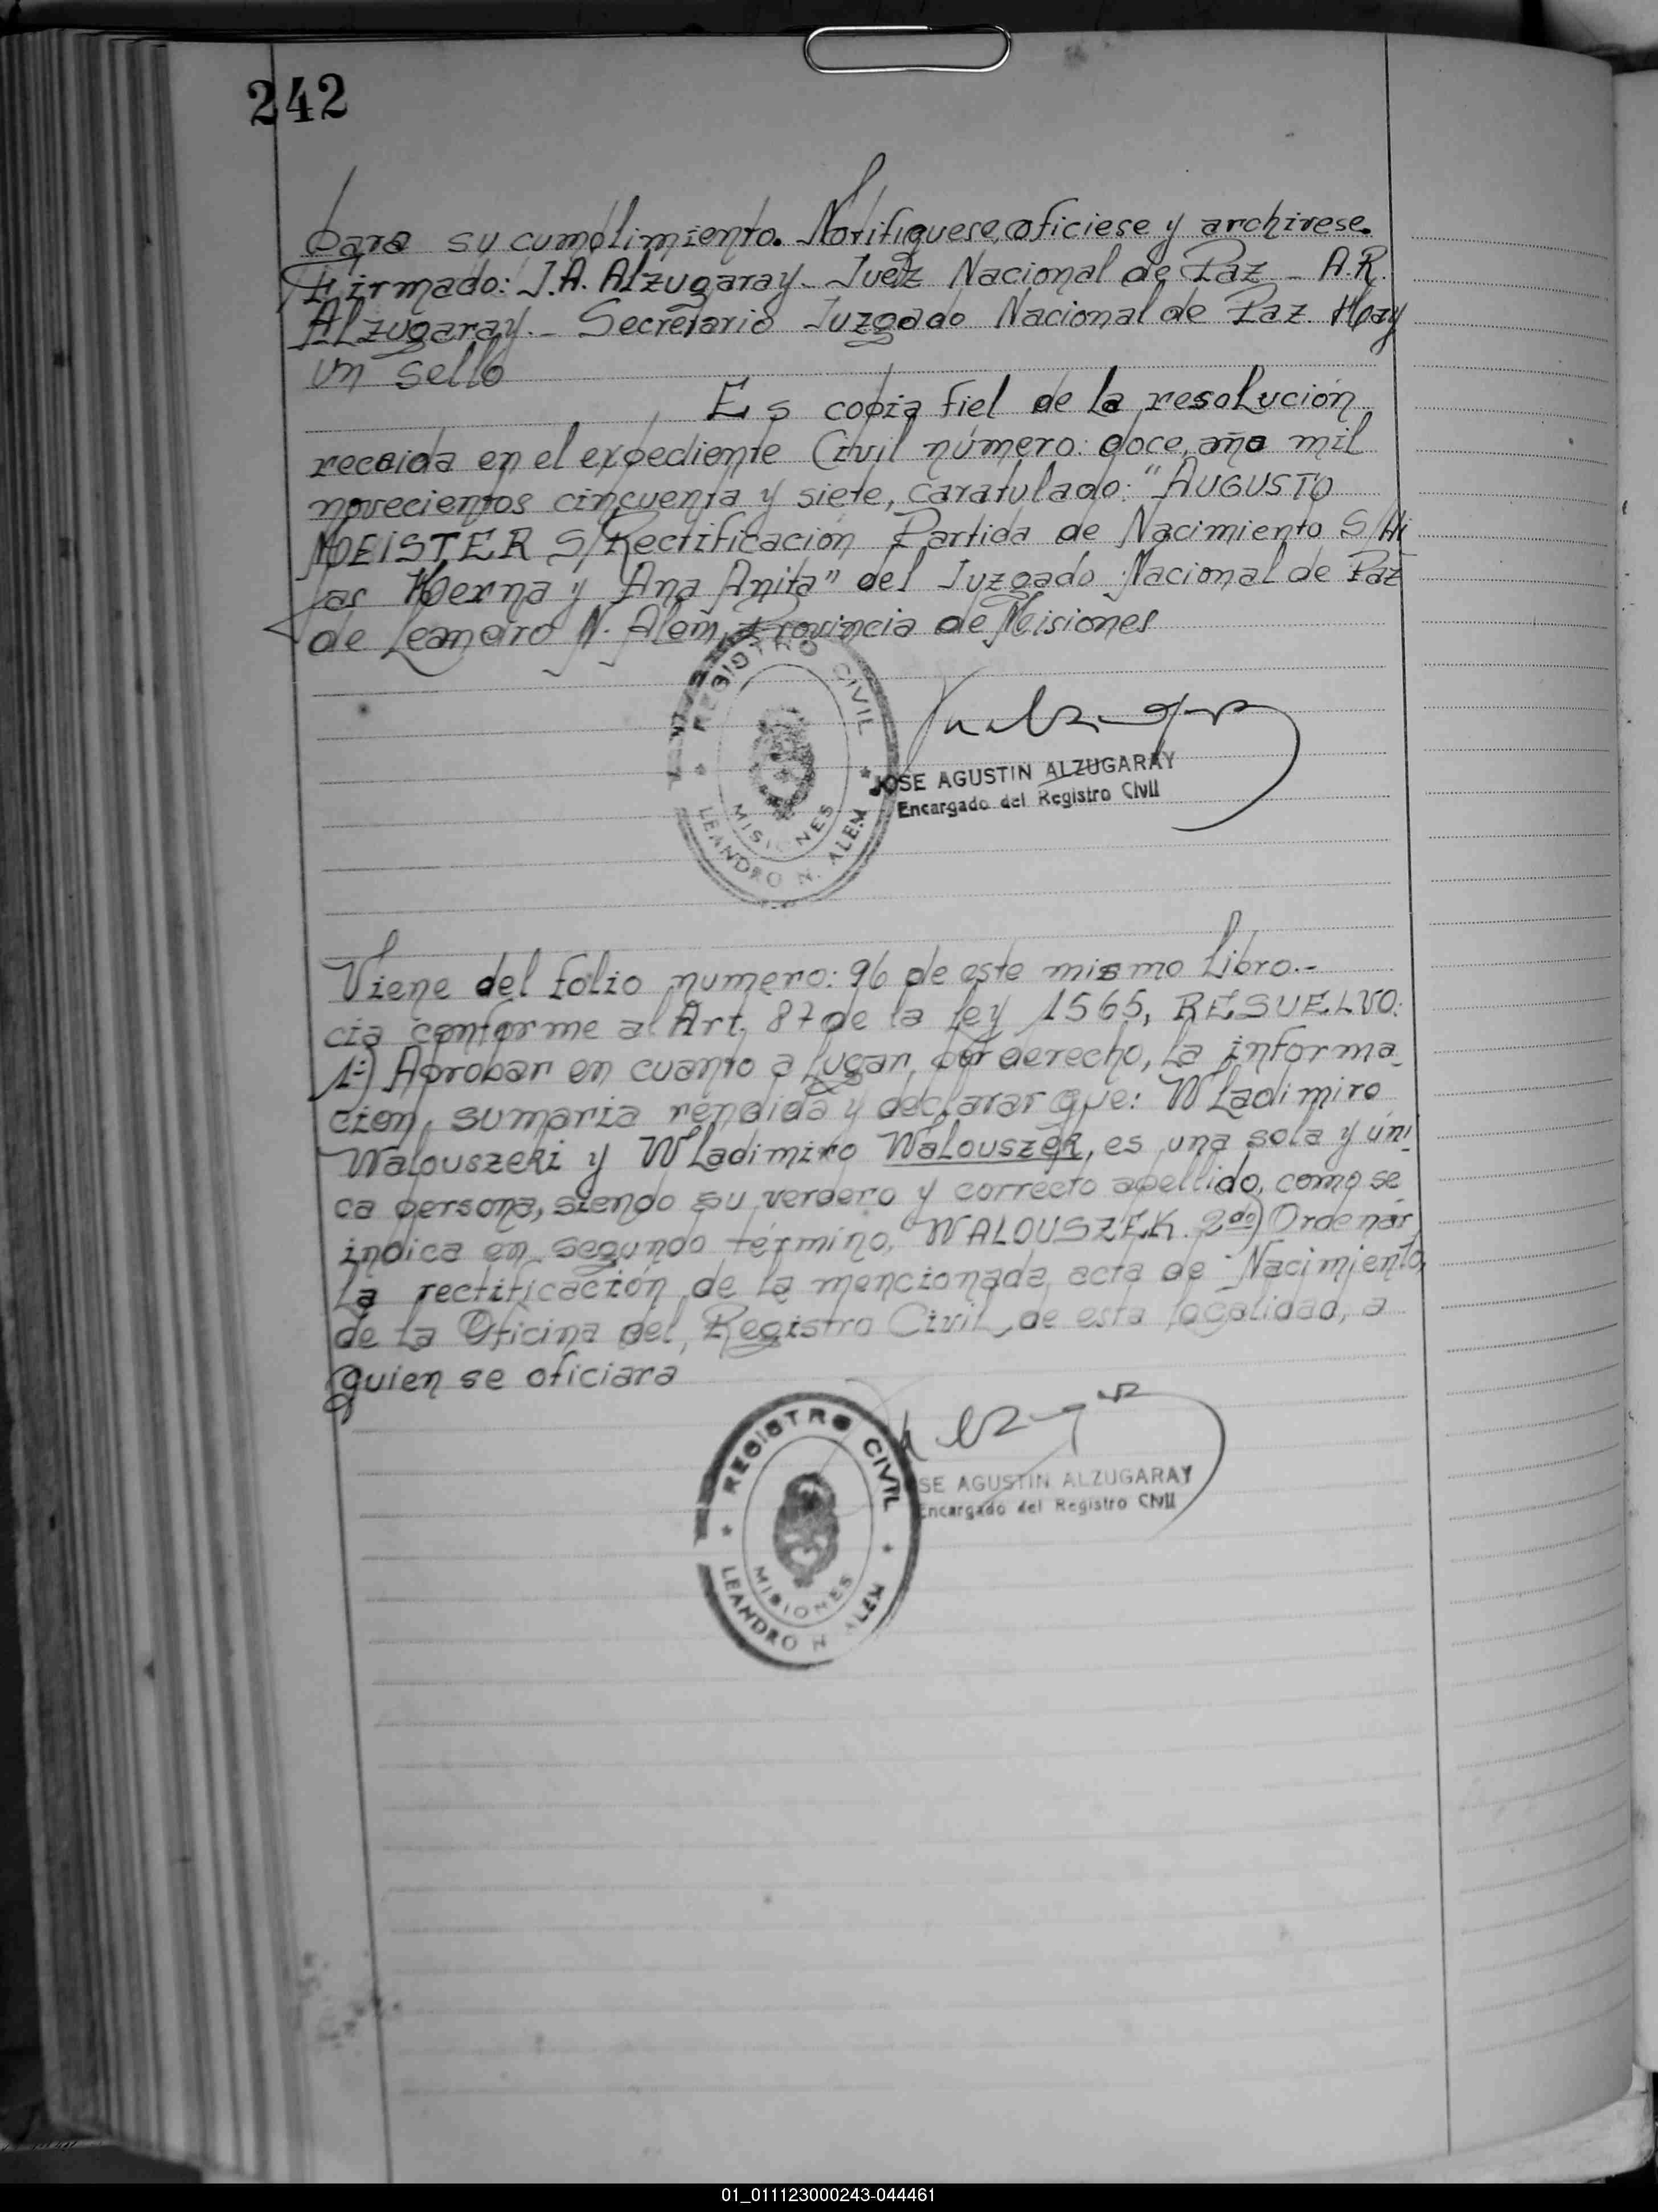 242
para su cumplimiento. Notifiquese, oficiese y archivese.
Firmado: J.A. Alzugaray_ Juez Nacional de Paz _ A.R.
Alzugaray._ Secretario Juzgado Nacional de Paz. Hay
un sello
Es copia fiel de la resolución
recaida en el expediente Civil número: doce, año mil
novecientos cincuenta y siete, caratulado: "AUGUSTO
MEISTER S/Rectificación Partida de Nacimiento S/Hi
jas Herna y Ana Anita" del Juzgado Nacional de Paz
de Leandro N. Alem, Provincia de Misiones
REGISTRO CIVIL
MISIONES
LEANDRO N. ALEM
JOSE AGUSTIN ALZUGARAY
Encargado del Registro Civil
Viene del folio numero: 96 de este mismo Libro.-
cia conforme al Art, 87 de la ley 1565, RESUELVO:
1º) Aprobar en cuanto a lugar por derecho, la informa_
cion, sumaria rendida y declarar que: Wladimiro
Walouszeki y Wladimiro Walouszek, es una sola y úni
ca persona, siendo su verdero y correcto apellido, como se
indica en segundo término, WALOUSZEK. 2do) Ordenar
la rectificación de la mencionada acta de Nacimiento,
de la Oficina del, Registro Civil de esta localidad, a
quien se oficiara
REGISTRO CIVIL
MISIONES
LEANDRO N ALEM
SE AGUSTIN ALZUGARAY
Encargado del Registro Civil
01_011123000243-044461